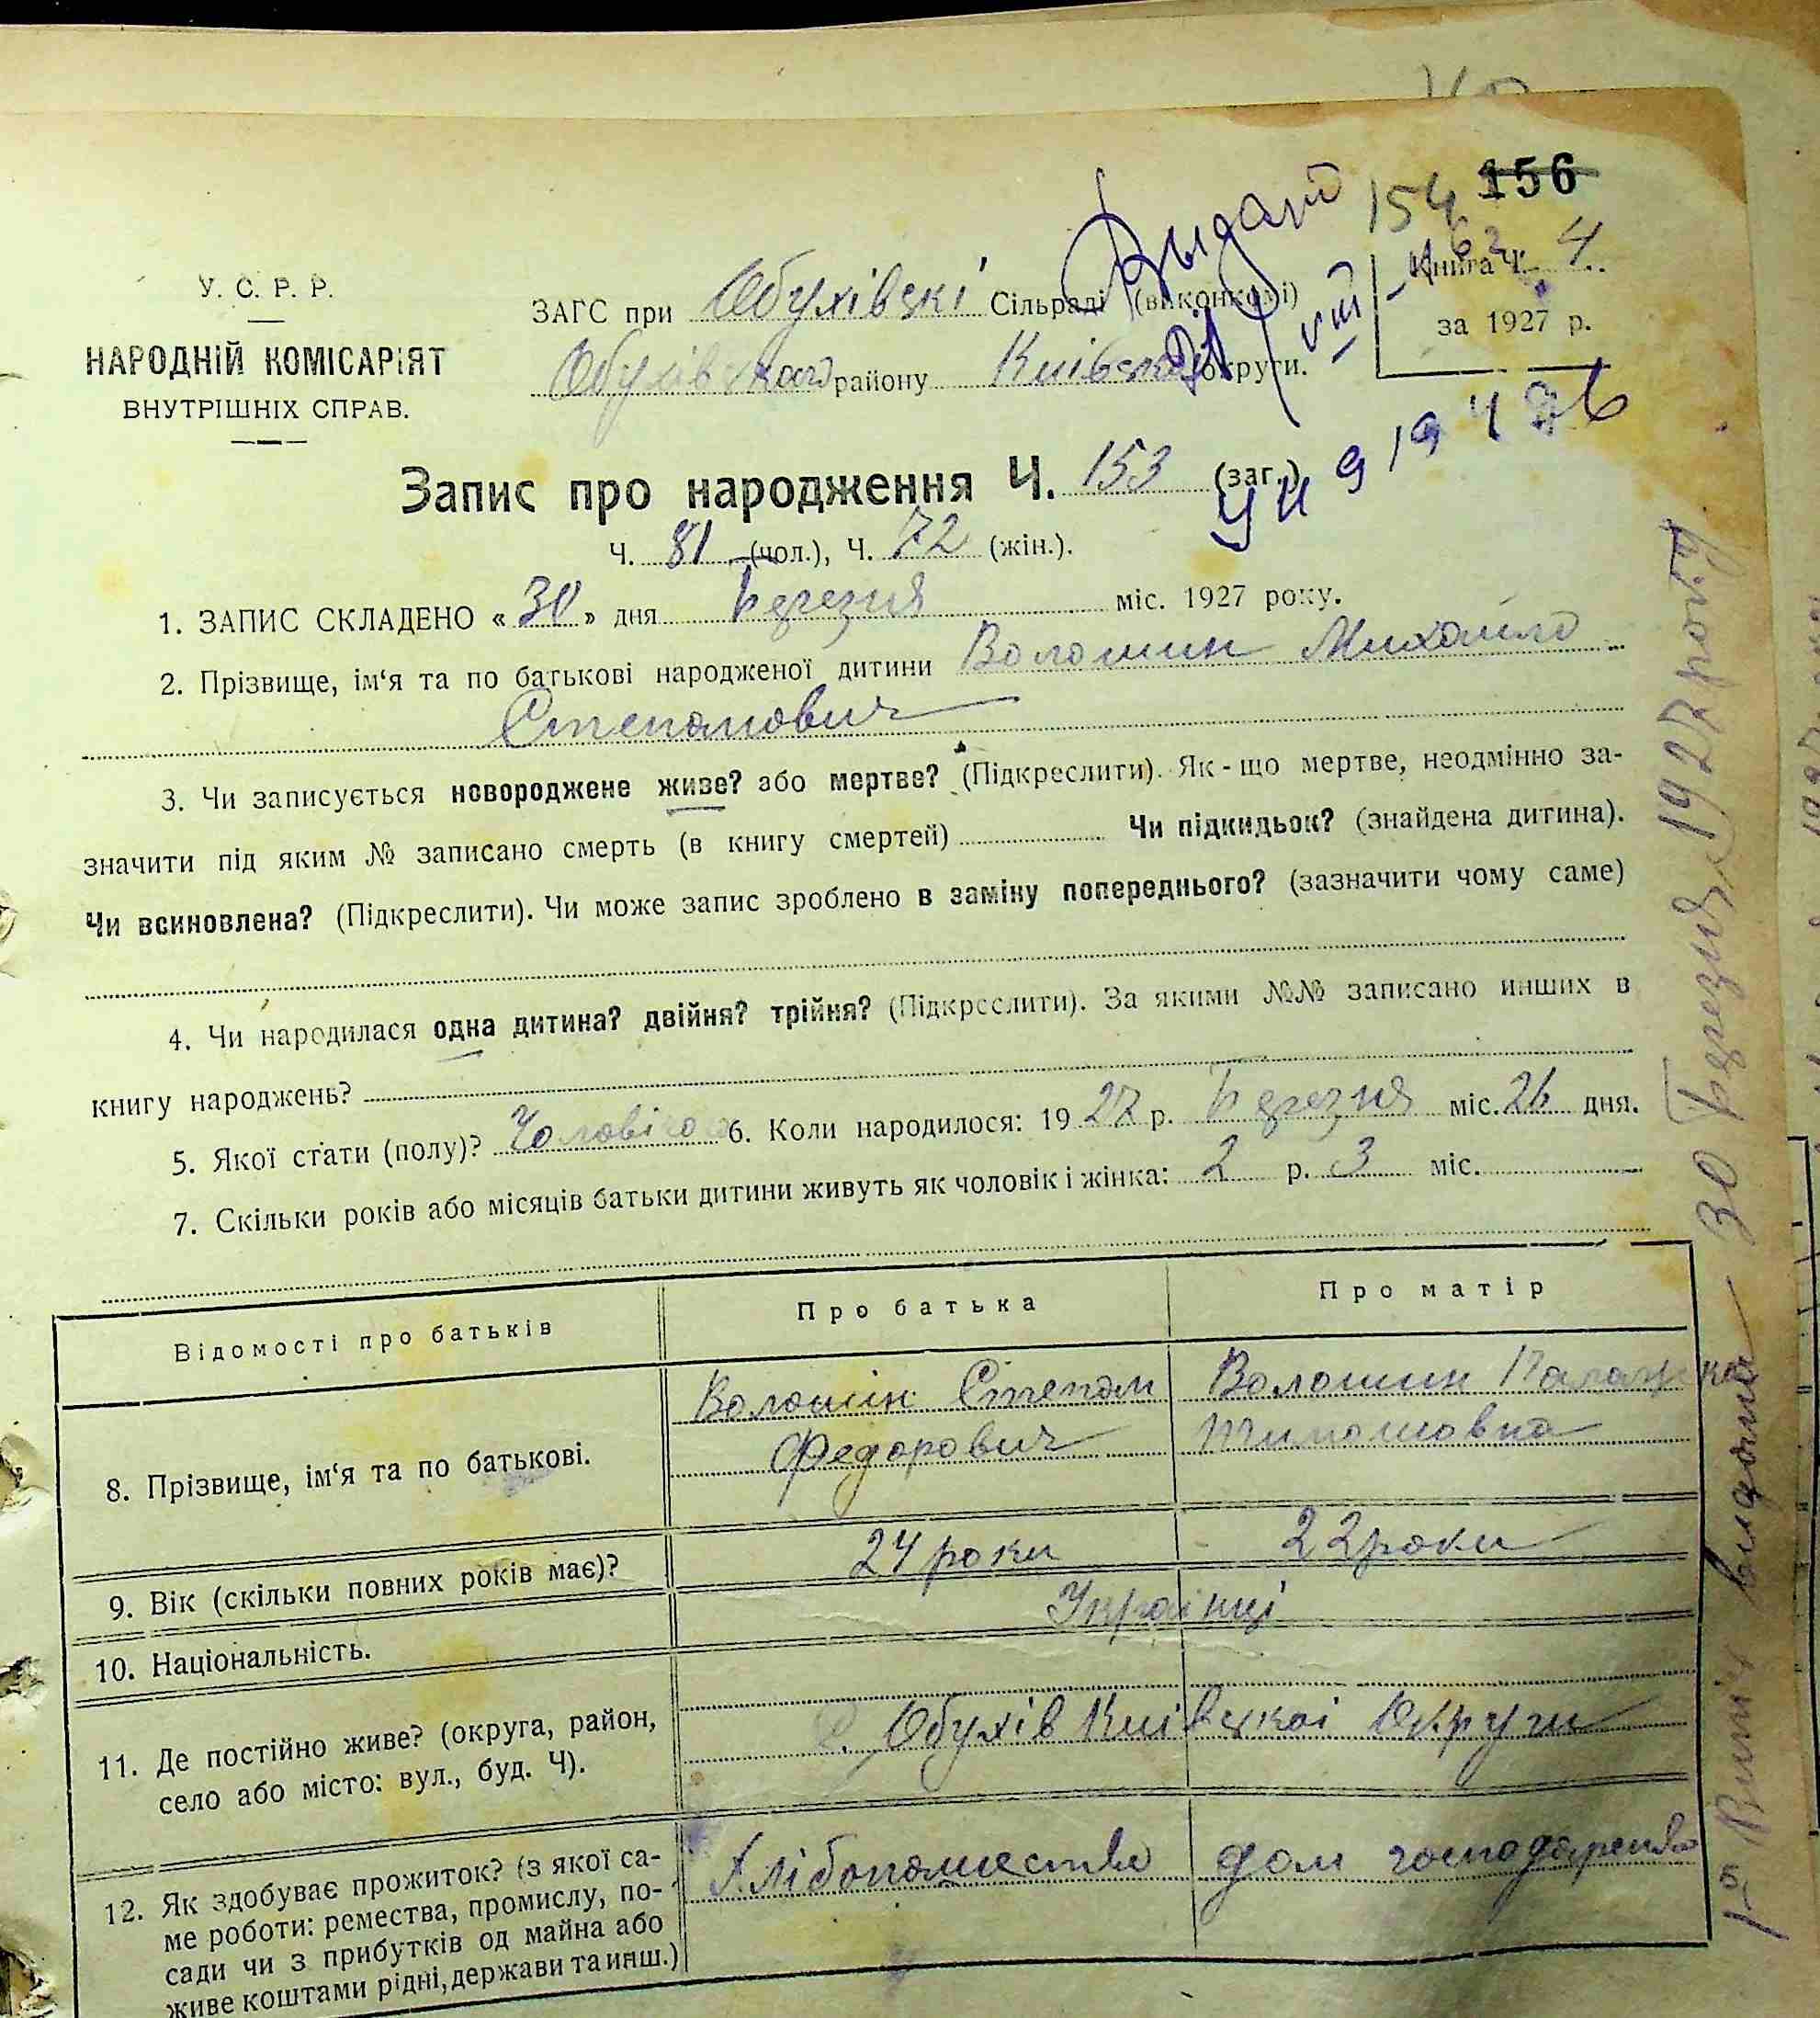 156
154
У. С. Р. Р.
НАРОДНІЙ КОМІСАРІЯТ
ВНУТРІШНІХ СПРАВ.
ЗАГС при Обухівскі Сільраді (виконкомі)
Обухівского району Киівскої округи.
Книга Ч. 4
за 1927 р.
Выдано
Запис про народження Ч. 153 (заг.)
Ч. 81 (чол.), Ч. 72 (жін.).
1. ЗАПИС СКЛАДЕНО « 30 » дня Березня міс. 1927 року.
2. Прізвище, ім‘я та по батькові народженої дитини Волошин Михайло
Степанович
3. Чи записується новороджене живе? або мертве? (Підкреслити). Як-що мертве, неодмінно за-
значити під яким № записано смерть (в книгу смертей) Чи підкидьок? (знайдена дитина).
Чи всиновлена? (Підкреслити). Чи може запис зроблено в заміну попереднього? (зазначити чому саме)
4. Чи народилася одна дитина? двійня? трійня? (Підкреслити). За якими №№ записано инших в
книгу народжень?
5. Якої стати (полу)? Чоловічо 6. Коли народилося: 19 27 р. Березня міс. 26 дня.
7. Скільки років або місяців батьки дитини живуть як чоловік і жінка: 2 р. 3 міс.
Відомості про батьків
Про батька
Про матір
8. Прізвище, ім‘я та по батькові.
Волошін Степан
Федорович
Волошин Палажка
Тимошовна
9. Вік (скільки повних років має)?
24 роки
22 роки
10. Національність.
Українці
11. Де постійно живе? (округа, район,
село або місто: вул., буд. Ч).
с. Обухів Киівскої Округи
12. Як здобуває прожиток? (з якої са-
ме роботи: ремества, промислу, по-
сади чи з прибутків од майна або
живе коштами рідні, держави та инш.)
Хлібопашество
дом господарство
Витіг видано 30 Березня 1927 року